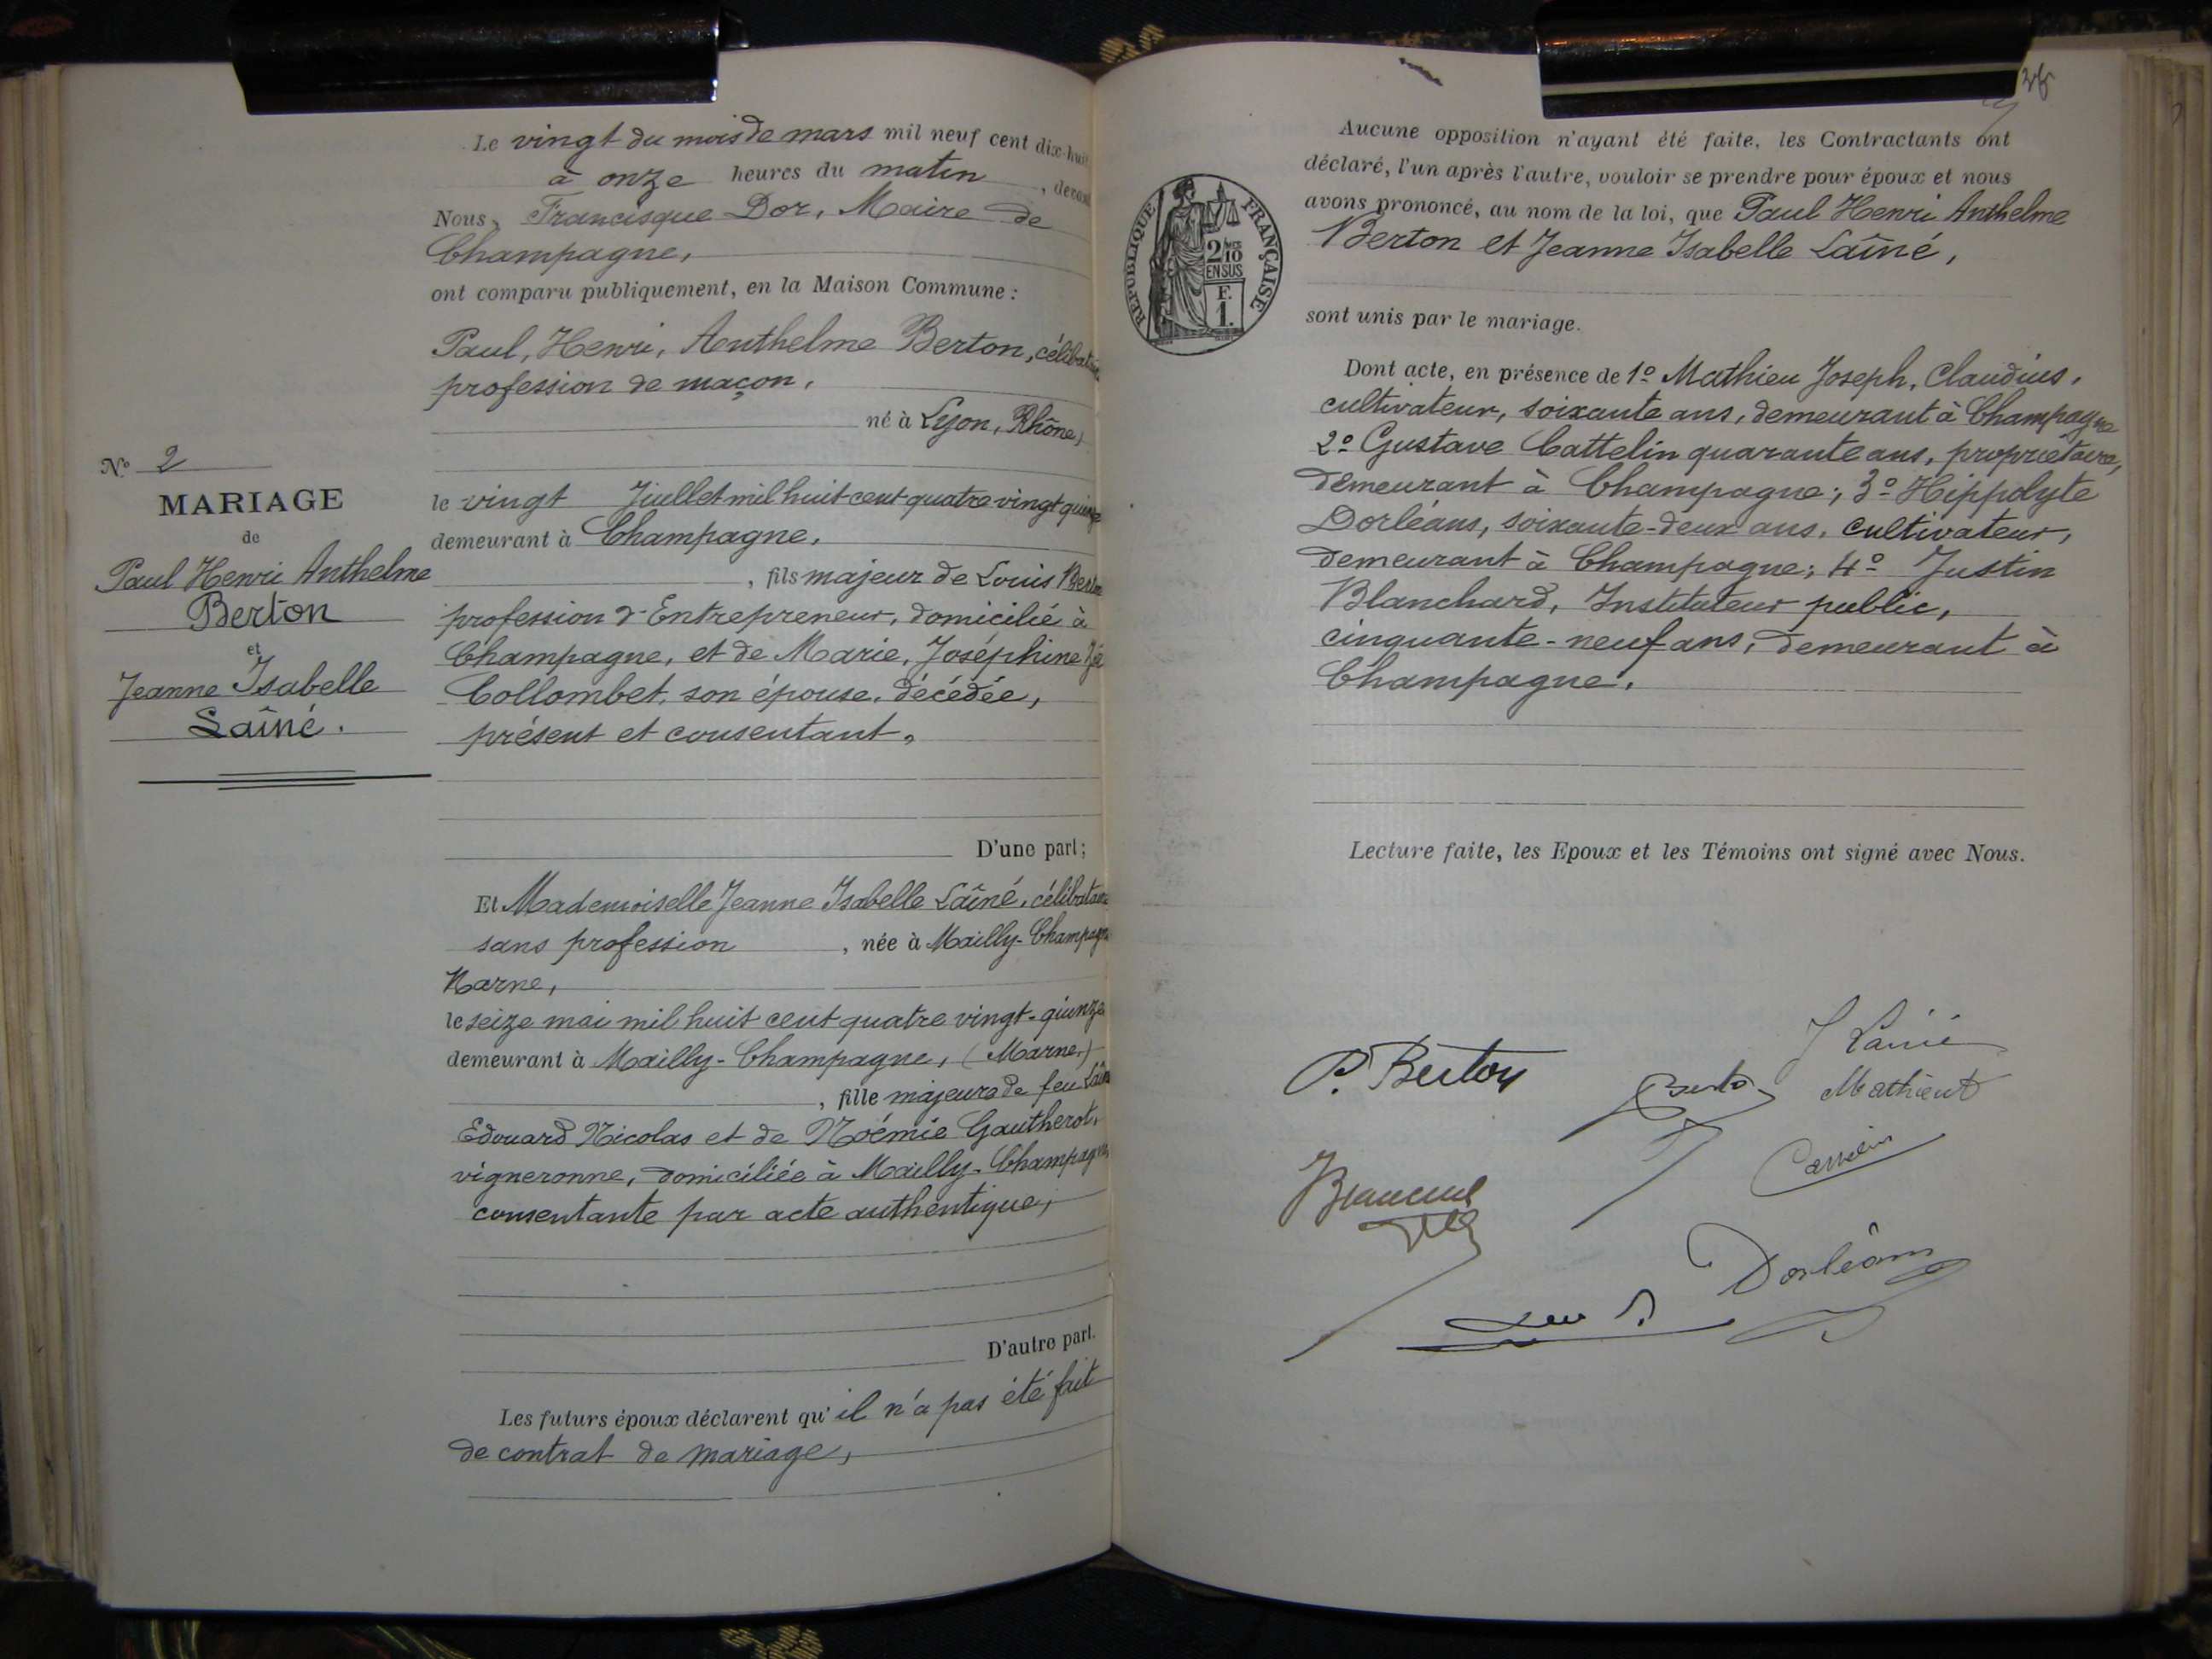 Le vingt du mois de mars mil neuf cent dix-huit
à onze heures du matin, devant
Nous, Francisque Dor, Maire de
Champagne,
ont comparu publiquement, en la Maison Commune :
Paul, Henri, Anthelme Berton, célibataire
profession de maçon,
né à Lyon, Rhône,
le vingt Juillet mil huit cent quatre vingt quinze
demeurant à Champagne,
, fils majeur de Louis Berton
profession d'Entrepreneur, domicilié à
Champagne, et de Marie, Joséphine
Collombet, son épouse, décédée,
présent et consentant,
D'une part;
Et Mademoiselle Jeanne Isabelle Laîné, célibataire
sans profession, née à Mailly-Champagne
Marne,
le seize mai mil huit cent quatre vingt-quinze
demeurant à Mailly-Champagne, (Marne,)
, fille majeure de feu Laîné
Edouard Nicolas et de Noémie Gautherot,
vigneronne, domiciliée à Mailly-Champagne,
consentante par acte authentique,
D'autre part.
Les futurs époux déclarent qu'il n'a pas été fait
de contrat de mariage,
No 2
MARIAGE
de
Paul Henri Anthelme
Berton
et
Jeanne Isabelle
Laîné.
Aucune opposition n'ayant été faite, les Contractants ont
déclaré, l'un après l'autre, vouloir se prendre pour époux et nous
avons prononcé, au nom de la loi, que Paul Henri Anthelme
Berton et Jeanne Isabelle Laîné,
sont unis par le mariage.
Dont acte, en présence de 1º Mathieu Joseph, Claudius,
cultivateur, soixante ans, demeurant à Champagne
2º Gustave Cattelin quarante ans, propriétaire,
demeurant à Champagne; 3º Hippolyte
Dorléans, soixante-deux ans, cultivateur,
demeurant à Champagne; 4º Justin
Blanchard, Instituteur public,
cinquante-neuf ans, demeurant à
Champagne.
Lecture faite, les Epoux et les Témoins ont signé avec Nous.
RÉPUBLIQUE FRANÇAISE
2/10
EN SUS
F.
1.
P. Berton
J Lainé
Mathieu
Dorléans